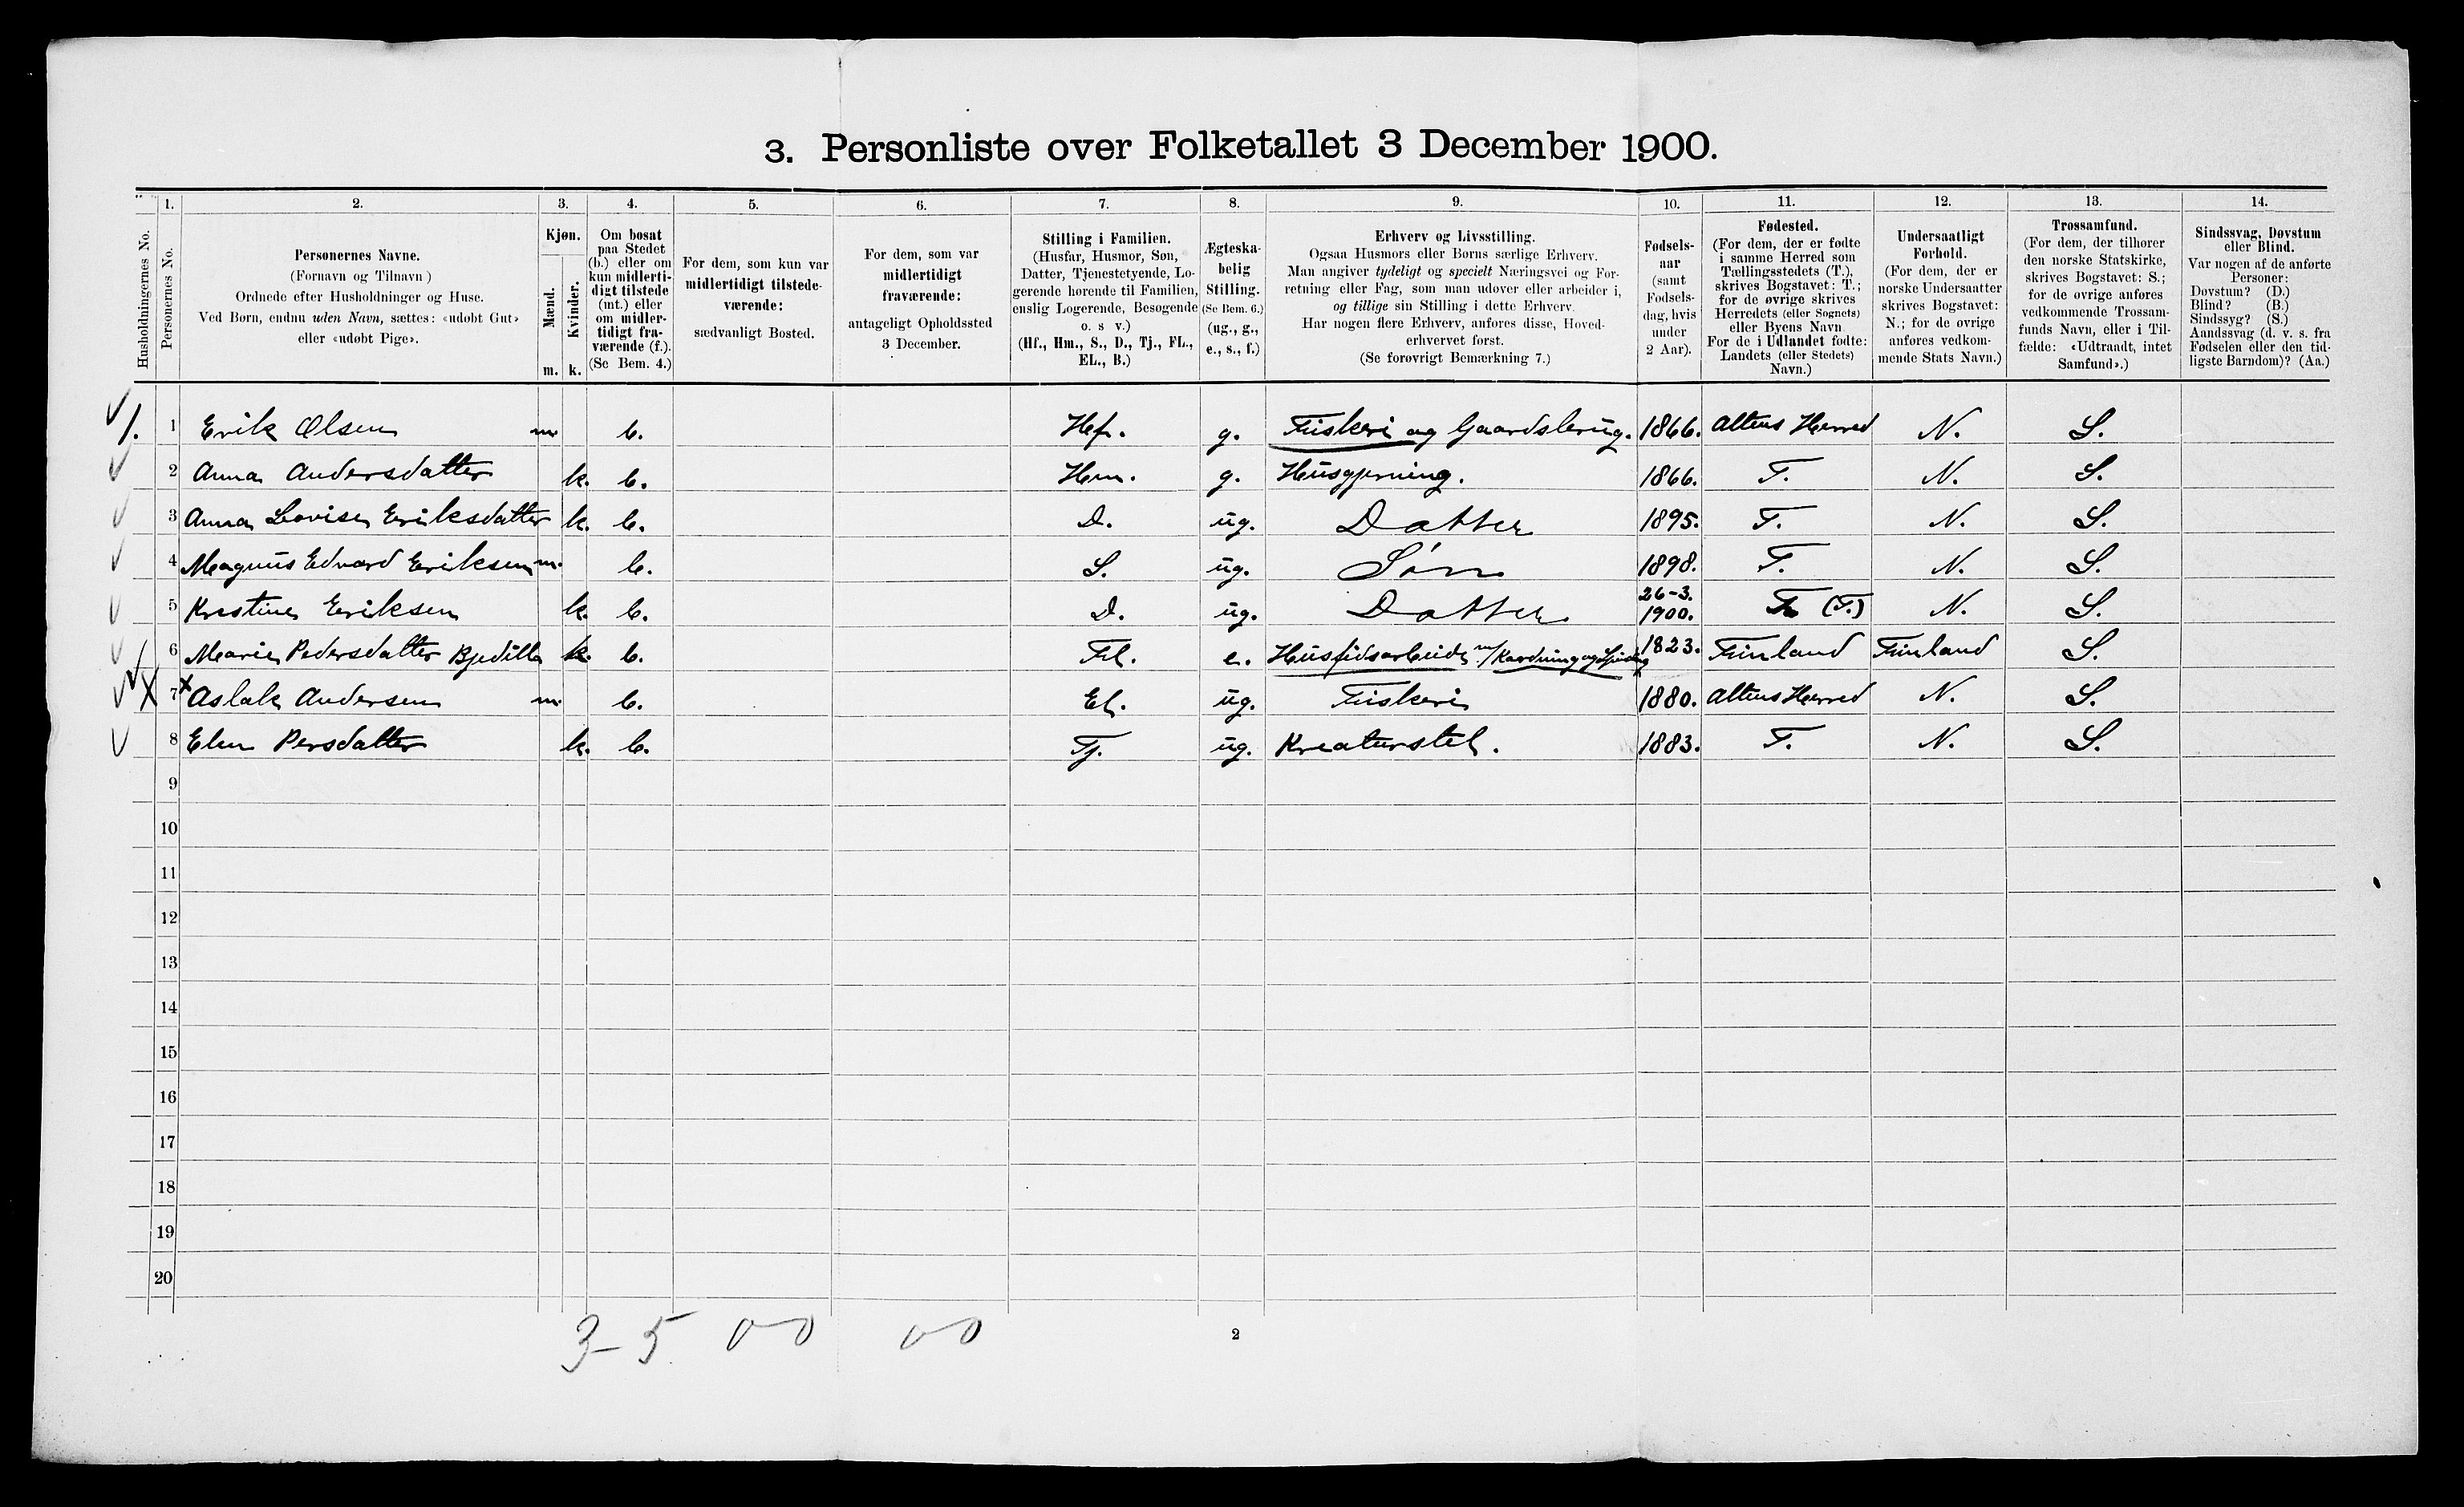 3. Personliste over Folketallet 3 December 1900.
1. 2. 3. 4. 5. 6. 7. 8. 9. 10. 11. 12. 13. 14.
Husholdningernes No.
Personernes No.
Personernes Navne.
(Fornavn og Tilnavn)
Ordnede efter Husholdninger og Huse.
Ved Børn, endnu uden Navn, sættes: «udøbt Gut»
eller «udøbt Pige».
Kjøn.
Mænd.
Kvinder.
m. k.
Om bosat
paa Stedet
(b.) eller om
kun midlerti-
digt tilstede
(mt.) eller
om midler-
tidigt fra-
værende (f.).
(Se Bem. 4.)
For dem, som kun var
midlertidigt tilstede-
værende:
sædvanligt Bosted.
For dem, som var
midlertidigt
fraværende:
antageligt Opholdssted
3 December.
Stilling i Familien.
(Husfar, Husmor, Søn,
Datter, Tjenestetyende, Lo-
gerende hørende til Familien,
enslig Logerende, Besøgende
o. s v.)
(Hf., Hm., S., D., Tj., FL.,
EL., B.)
Ægteska-
belig
Stilling.
(Se Bem. 6.)
(ug., g.,
e., s., f.)
Erhverv og Livsstilling.
Ogsaa Husmors eller Børns særlige Erhverv.
Man angiver tydeligt og specielt Næringsvei og For-
retning eller Fag, som man udøver eller arbeider i,
og tillige sin Stilling i dette Erhverv.
Har nogen flere Erhverv, anføres disse, Hoved-
erhvervet først.
(Se forøvrigt Bemærkning 7.)
Fødsels-
aar
(samt
Fødsels-
dag, hvis
under
2 Aar).
Fødested.
(For dem, der er fødte
i samme Herred som
Tællingsstedets (T.),
skrives Bogstavet: T.;
for de øvrige skrives
Herredets (eller Sognets)
eller Byens Navn
For de i Udlandet fødte:
Landets (eller Stedets)
Navn.)
Undersaatligt
Forhold.
(For dem, der er
norske Undersaatter
skrives Bogstavet:
N.; for de øvrige
anføres vedkom-
mende Stats Navn.)
Trossamfund.
(For dem, der tilhører
den norske Statskirke,
skrives Bogstavet: S.;
for de øvrige anføres
vedkommende Trossam-
funds Navn, eller i Til-
fælde: «Udtraadt, intet
Samfund».)
Sindssvag, Døvstum
eller Blind.
Var nogen af de anførte
Personer:
Døvstum? (D.)
Blind? (B.)
Sindssyg? (S.)
Aandssvag (d. v. s. fra
Fødselen eller den tid-
ligste Barndom)? (Aa.)
1. 1 Erik Olsen m. b. Hf. g. Fiskeri og Gaardsbrug. 1866. Altens Herred N. S.
2 Anna Andersdatter k. b. Hm. g. Husgjerning. 1866. T. N. S.
3 Anna Lovise Eriksdatter k. b. D. ug. Datter 1895. T. N. S.
4 Magnus Edvard Eriksen m. b. S. ug. Søn 1898. T. N. S.
5 Kristine Eriksen k. b. D. ug. Datter 26-3. 1900. (T.) N. S.
6 Marie Pedersdatter k. b. FL. e. Husflidsarbeide m/ Kardning og Spinding 1823. Finland Finland S.
7 x Aslak Andersen m. b. EL. ug. Fiskeri 1880. Altens Herred N. S.
8 Elen Persdatter k. b. Tj. ug. Kreaturstel. 1883. T. N. S.
9
10
11
12
13
14
15
16
17
18
19
20
3-5 00 00
2